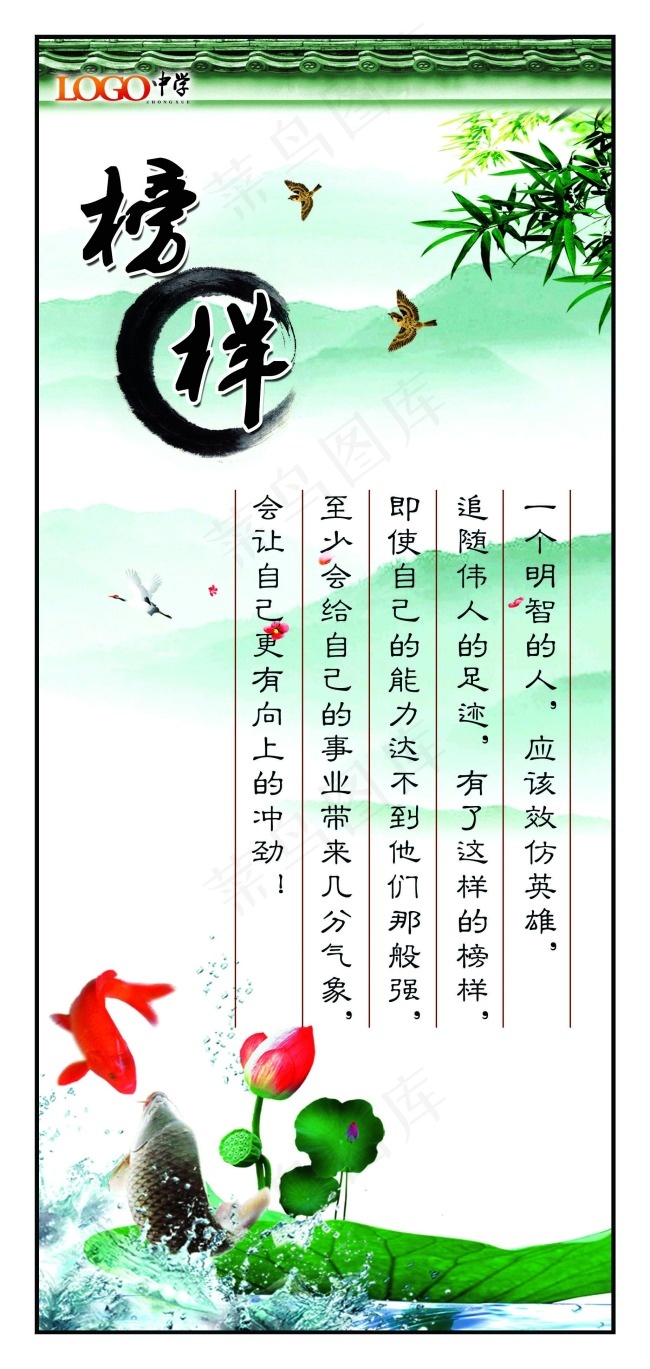 LOGO中学
ZHONGXUE
榜样
一个明智的人，应该效仿英雄，
追随伟人的足迹，有了这样的榜样，
即使自己的能力达不到他们那般强，
至少会给自己的事业带来几分气象，
会让自己更有向上的冲劲！
菜鸟图库
菜鸟图库
菜鸟图库
菜鸟图库
菜鸟图库